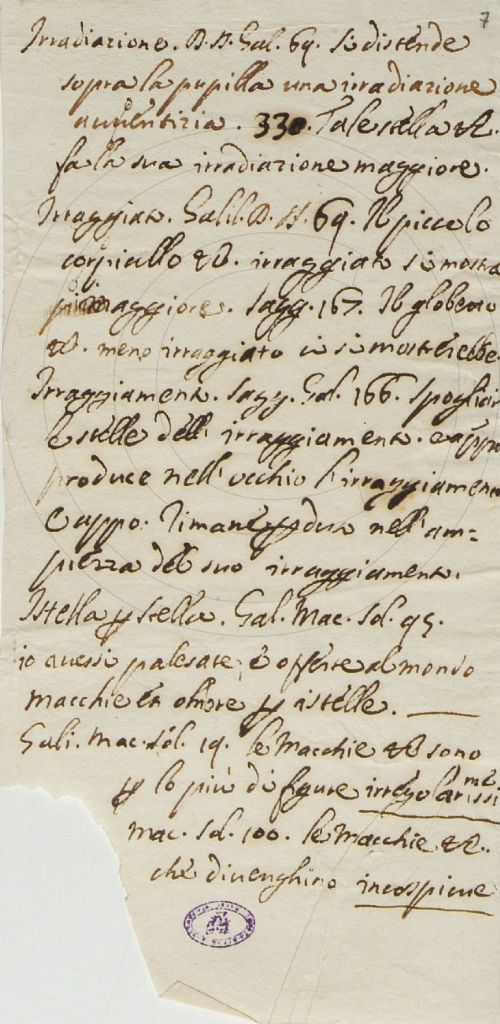 7
Irradiazione. D. S. Gal. 69. Si distende
sopra la pupilla una irradiazione
auuentizia. 330. Tale stella &c.
fa la sua irradiazione maggiore.
Irraggiato. Galil. D. S. 69. Il piccolo
corpicello &c. irraggiato si mostra
maggiore. Sagg. 167. Il globetto
&c. meno irraggiato si mostrerebbe
Irraggiamento. Sagg. Gal. 166. Spogliar
le stelle dell' irraggiamento. e appo
produce nell' occhio l'irraggiamento
E appo. Rimane nell' am=
piezza del suo irraggiamento.
Istella p stella. Gal. Mac. Sol. 95.
io auessi palesate, e offerte al mondo
macchie et ombre p istelle.
Gali. Mac. Sol. 19. le Macchie &c sono
p lo più di figure irregolarissime
Mac. Sol. 100. le Macchie &c.
che diuenghino incospicue